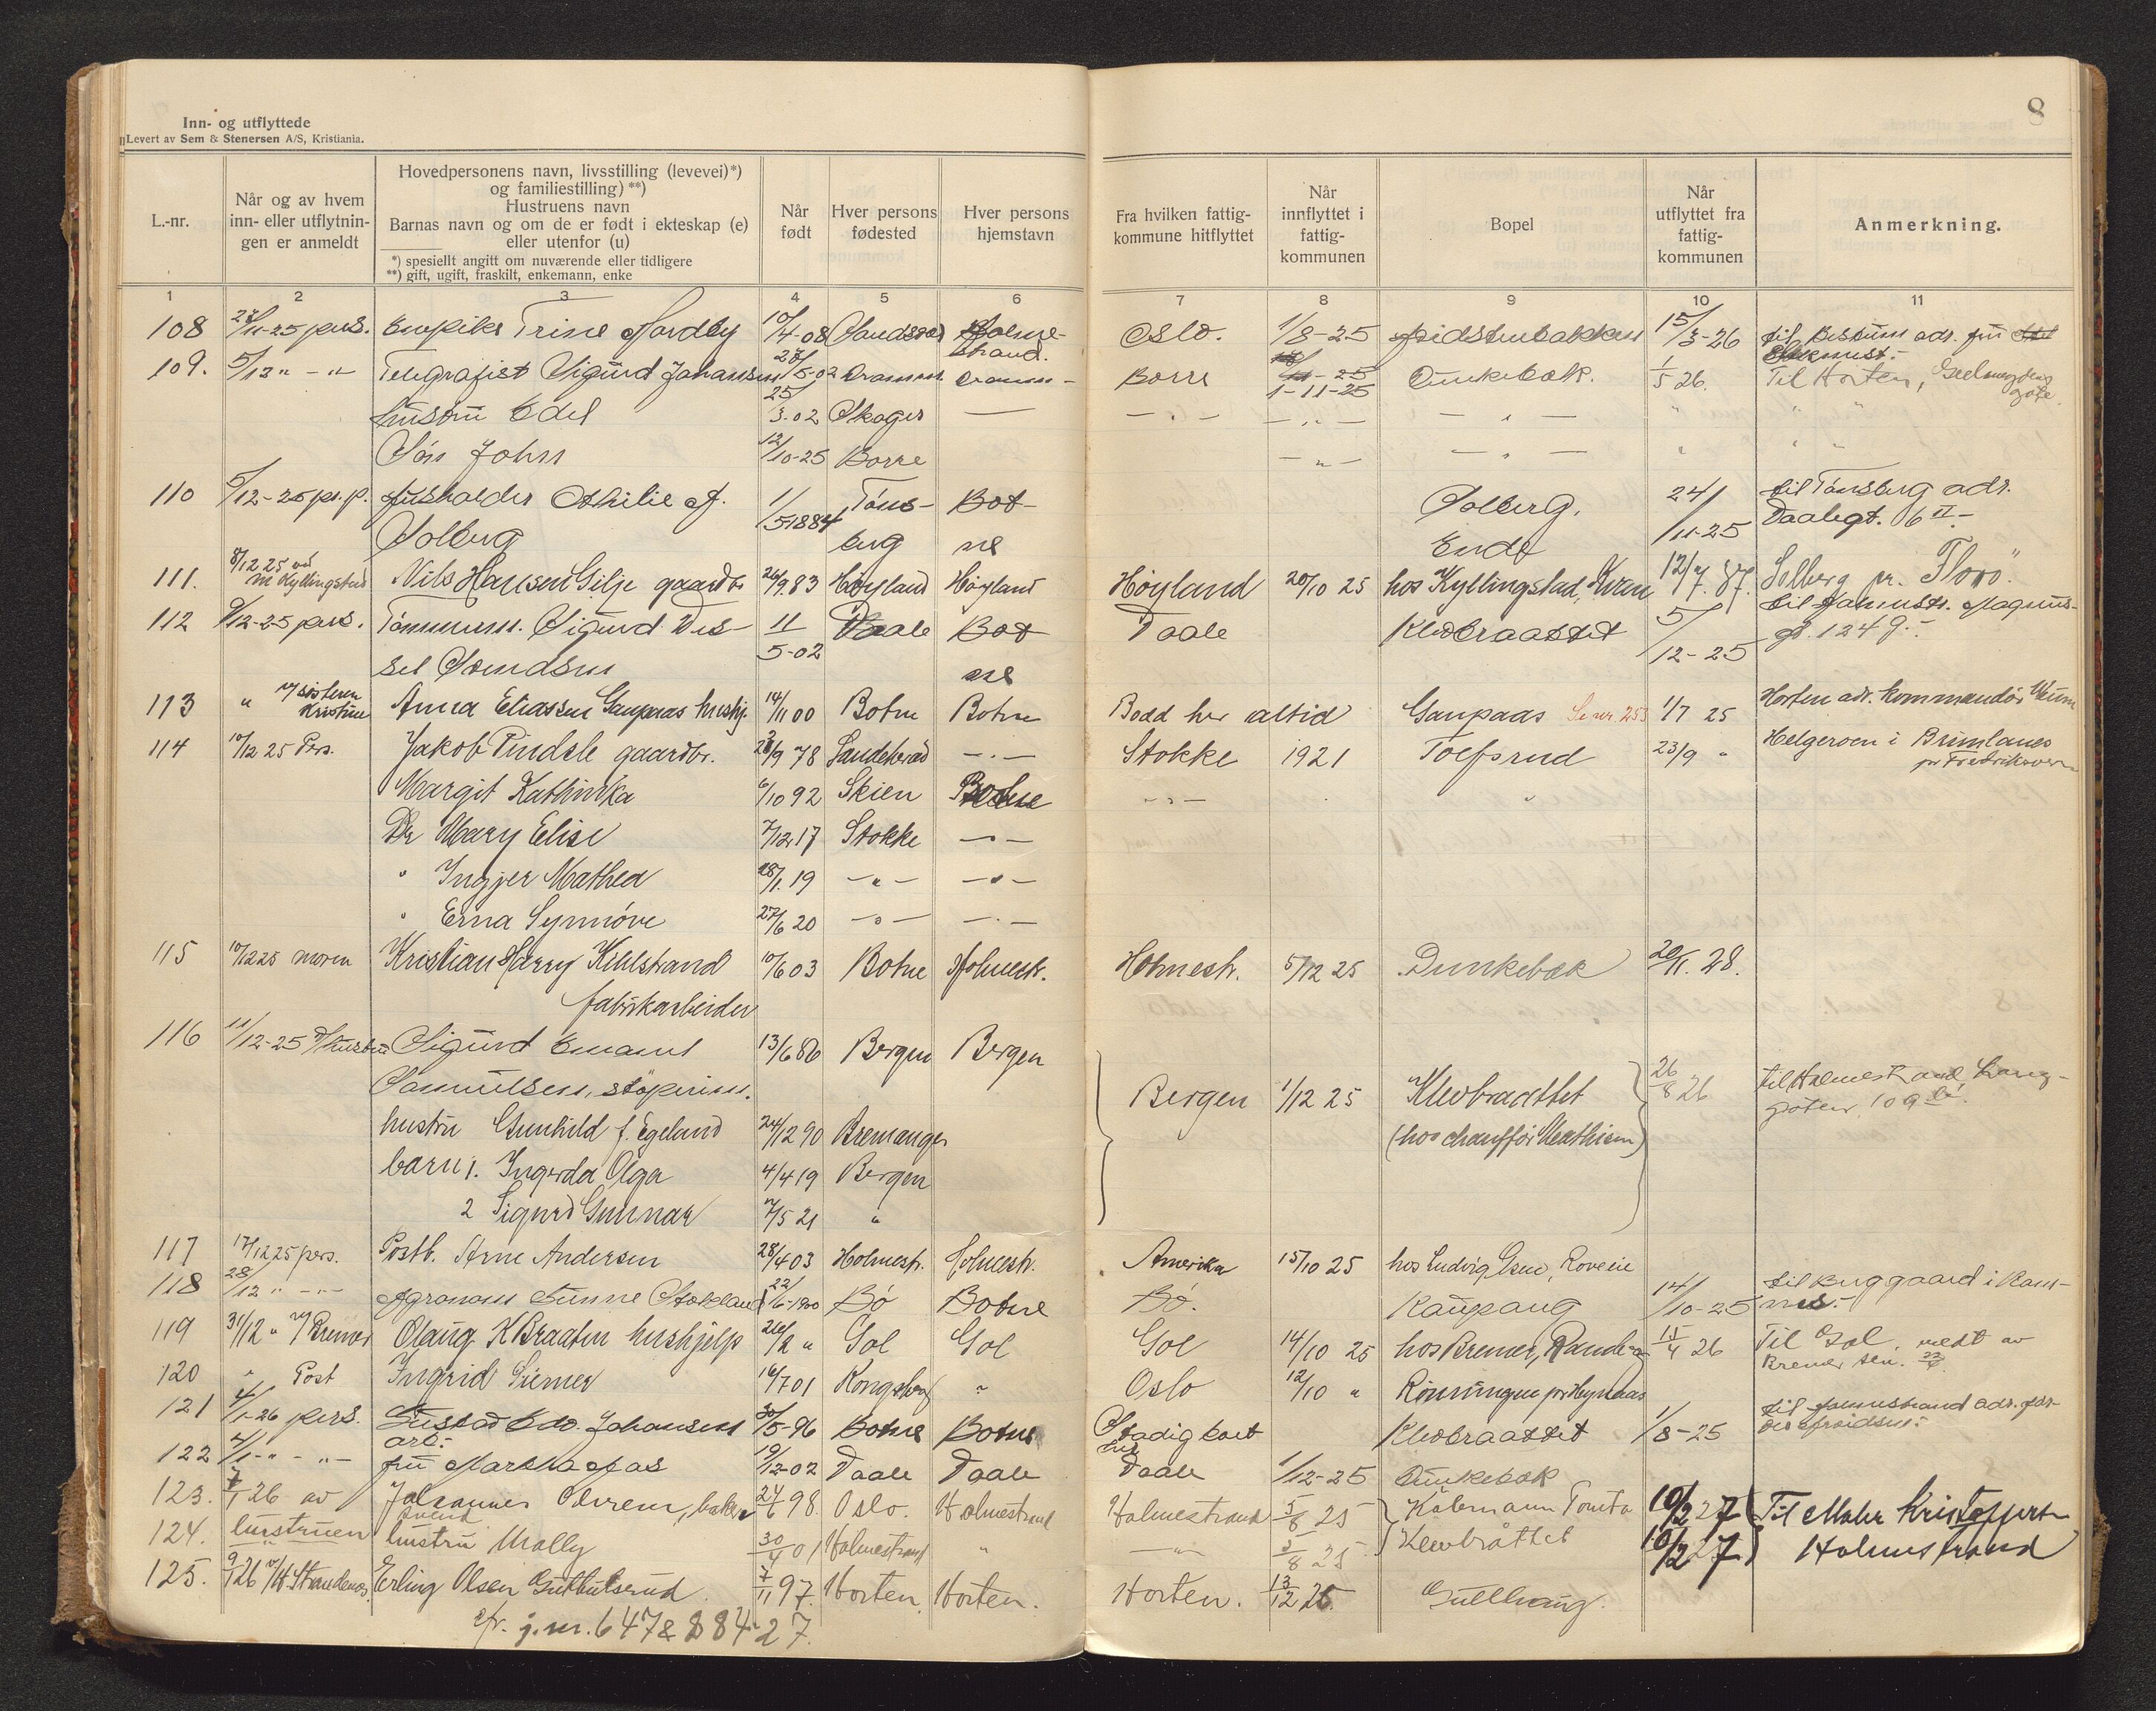 8
Inn- og utflyttede
Levert av Sem & Stenersen A/S, Kristiania.
L.-nr.
Når og av hvem inn- eller utflytnin- gen er anmeldt
Hovedpersonens navn, livsstilling (levevei)*)
og familiestilling) **)
Hustruens navn
Barnas navn og om de er født i ekteskap (e)
eller utenfor (u)
*) spesiellt angitt om nuværende eller tidligere
**) gift, ugift, fraskilt, enkemann, enke
Når født
Hver persons fødested
Hver persons hjemstavn
Fra hvilken fattig- kommune hitflyttet
Når innflyttet i fattig- kommunen
Bopel
Når utflyttet fra fattig- kommunen
Anmerkning.
1 2 3 4 5 6 7 8 9 10 11
108 pers. Trine Nordby 10/4-08 Holme- Oslo. 1/8-25 15/3-26 til adr. fru
strand.
109. 5/12 " - " Telegrafist Sigurd Johansen 5-02 Dramm. Dramm- Borre 1-11-25 Dunkebæk. 1/5 26. Til Horten,
gate.
hustru Edel 25/3-02 Skoger — — " — — " — — " — " "
Søn John 12/10-25 Borre — " — — " — " "
110 5/12-25 pr. p. Husholder Othilie H. 1/5 1884 Tøns- Bot- Solberg, 24/11-25 til Tønsberg adr.
Solberg berg ne Endø Daaligt. 6 II-
111. 8/12 25 ved M Kyllingstad Nils Hansen Gilje gaardbr 26/9.83 Høyland Høyland Høyland 20/10 25 hos Kyllingstad, 12/7.87. Solberg pr. Florö.
112 9/12-25 pers. Tømmerm. Sigurd Wes- 11/5-02 Vaale Bot Vaale Klevbraattet 5/12-25 til Holmestr. Magnus-
sel Svendsen ne gt. 124 9.-
113 " v/ søsteren Kristine Anna Eliassen Gaupaas hushj. 14/11 00 Botne Botne Bodd her altid Gaupaas 1/7 25 Horten adr. Kommandør
114 10/12 25 Pers. Jakob Tindsle gaardbr. 9 78 Sandeherad — " — Stokke 1921 Tofsrud 23/9 " Helgeroen i Brunlanes
pr Fredriksvern
Margit Kathinka 6/10 92 Skien Botne — " — "
Dr Mary Elise 7/12 17 Stokke — " —
" Ingjer Mathea 28/1. 19 — " — — " —
" Erna Synnöve 27/6 20 — " — — " —
115 10/12 25 moren Kristian Harry Kihlstrand 10/6 03 Botne Holmestr. Holmestr. 5/12 25 Dunkebæk 20/11. 28.
fabrikarbeider
116 11/12-25 v/hustru Sigurd Emanuel 13/6 86 Bergen Bergen Bergen 1/12 25 Klevbraattet 26/8 26 til Holmestrand Lang-
Samuelsen, støperim. (hos chauffør Mathisen) gaten 109
hustru Gunhild f. Egeland 24/12 90 Bremanger
barn 1. Ingerda Olga 4/4 19 Bergen
2 Sigurd Gunnar 7/5 21 "
117 17/12 25 pers. Postb. Arne Andersen 28/4 03 Holmestr. Holmestr. Amerika 15/10 25 hos Ludvig Rovein
118 28/12 " - " - Agronom Stokland 22/6-1900 Bø Botne Bø. Kaupang 14/10-25 til Buggaard i Ram-
nes.-
119 31/12 " v/ Bremer Olaug K Braaten hushjelp 26/2 " Gol Gol Gol 14/10 25 hos Bremer, 15/4 26 Til Gol,
120 " Post Ingrid Siemer 16/7 01 Kongsberg " Oslo 12/10 "
121 4/1-26 pers. Gustav Edv. Johansen 30/5-96 Botne Botne Stadig boet Klevbraattet 1/8-25 til Holmestrand adr.
arb.- her
122 4/1 - " - " - fru Martha Aas 19/12-02 Vaale Vaale Vaale 1/12-25 Dunkebæk
123. 7/1 26 av Johannes baker 24/6 98. Oslo. Holmestrand Holmestrand 5/8 25 10/2 27 Til
svend
124. hustruen hustru Molly 30/4 01 Holmestrand " — " — 5/8 25 Klevbråttet 10/2 27 Holmestrand
125. 9/1 26 Erling Olsen Gulhulsrud 7/11 97. Horten. Horten. Horten. 13/12 25. Gullhaug.
cfr. j.nr. 647 & 884 27.